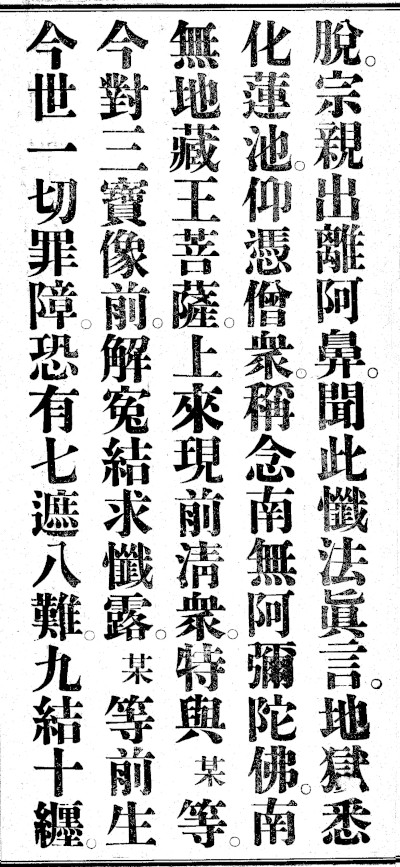 脫。宗親出離阿鼻。聞此懺法眞言。地獄悉
化蓮池。仰憑僧衆。稱念南無阿彌陀佛。南
無地藏王菩薩。上來現前淸衆。特與某等。
今對三寶像前。解寃結求懺露。某等前生
今世一切罪障。恐有七遮八難。九結十纏。